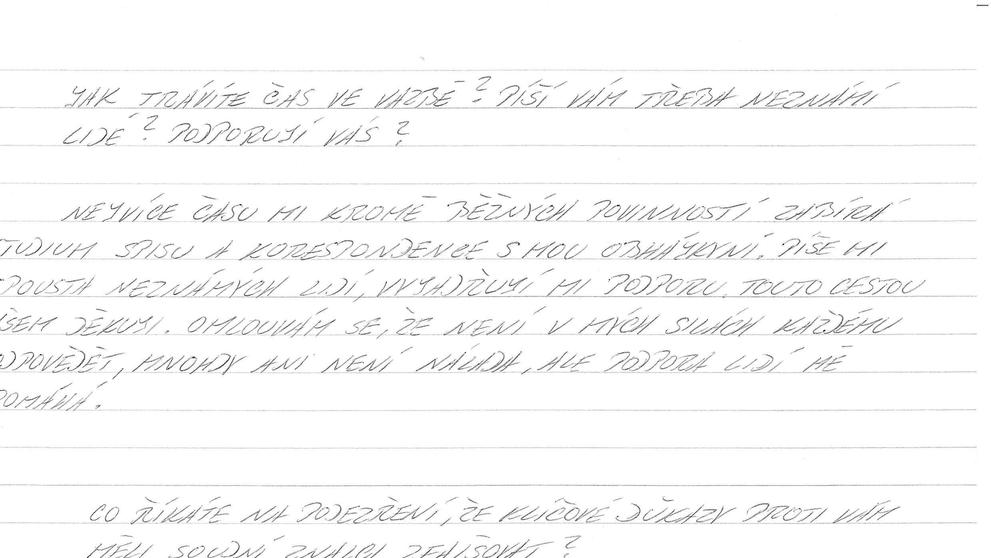 JAK TRÁVÍTE ČAS VE VAZBĚ? PÍŠÍ VÁM TŘEBA NEZNÁMÍ
LIDÉ? PODPORUJÍ VÁS?
NEJVÍCE ČASU MI KROMĚ BĚŽNÝCH POVINNOSTÍ ZABÍRÁ
TUDIUM SPISU A KORESPONDENCE S MOU OBHÁJKYNÍ. PÍŠE MI
POUSTA NEZNÁMÝCH LIDÍ, VYJADŘUJÍ MI PODPORU. TOUTO CESTOU
ŠEM DĚKUJI. OMLOUVÁM SE, ŽE NENÍ V MÝCH SILÁCH KAŽDÉMU
DPOVĚDĚT, MNOHDY ANI NENÍ NÁLADA, ALE PODPORA LIDÍ MĚ
OMÁHÁ.
CO ŘÍKÁTE NA PODEZŘENÍ, ŽE KLÍČOVÉ DŮKAZY PROTI VÁM
MĚLI SOUDNÍ ZNALCI ZFALŠOVAT?